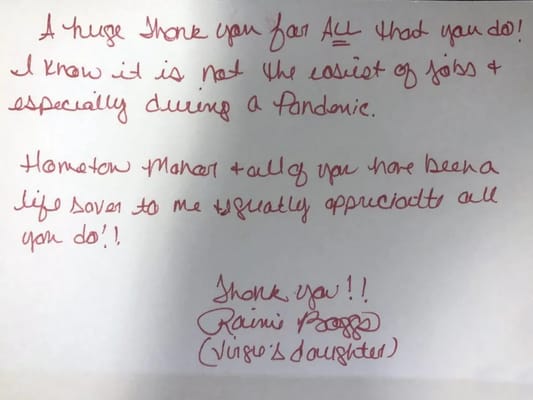 A huge Thank you for ALL that you do!
I know it is not the easiest of jobs +
especially during a Pandemic.
Hameton Manor + all of you have been a
life saver to me + greatly appreciate all
you do!!
Thank you!!
Boggs
(Virgie's daughter)